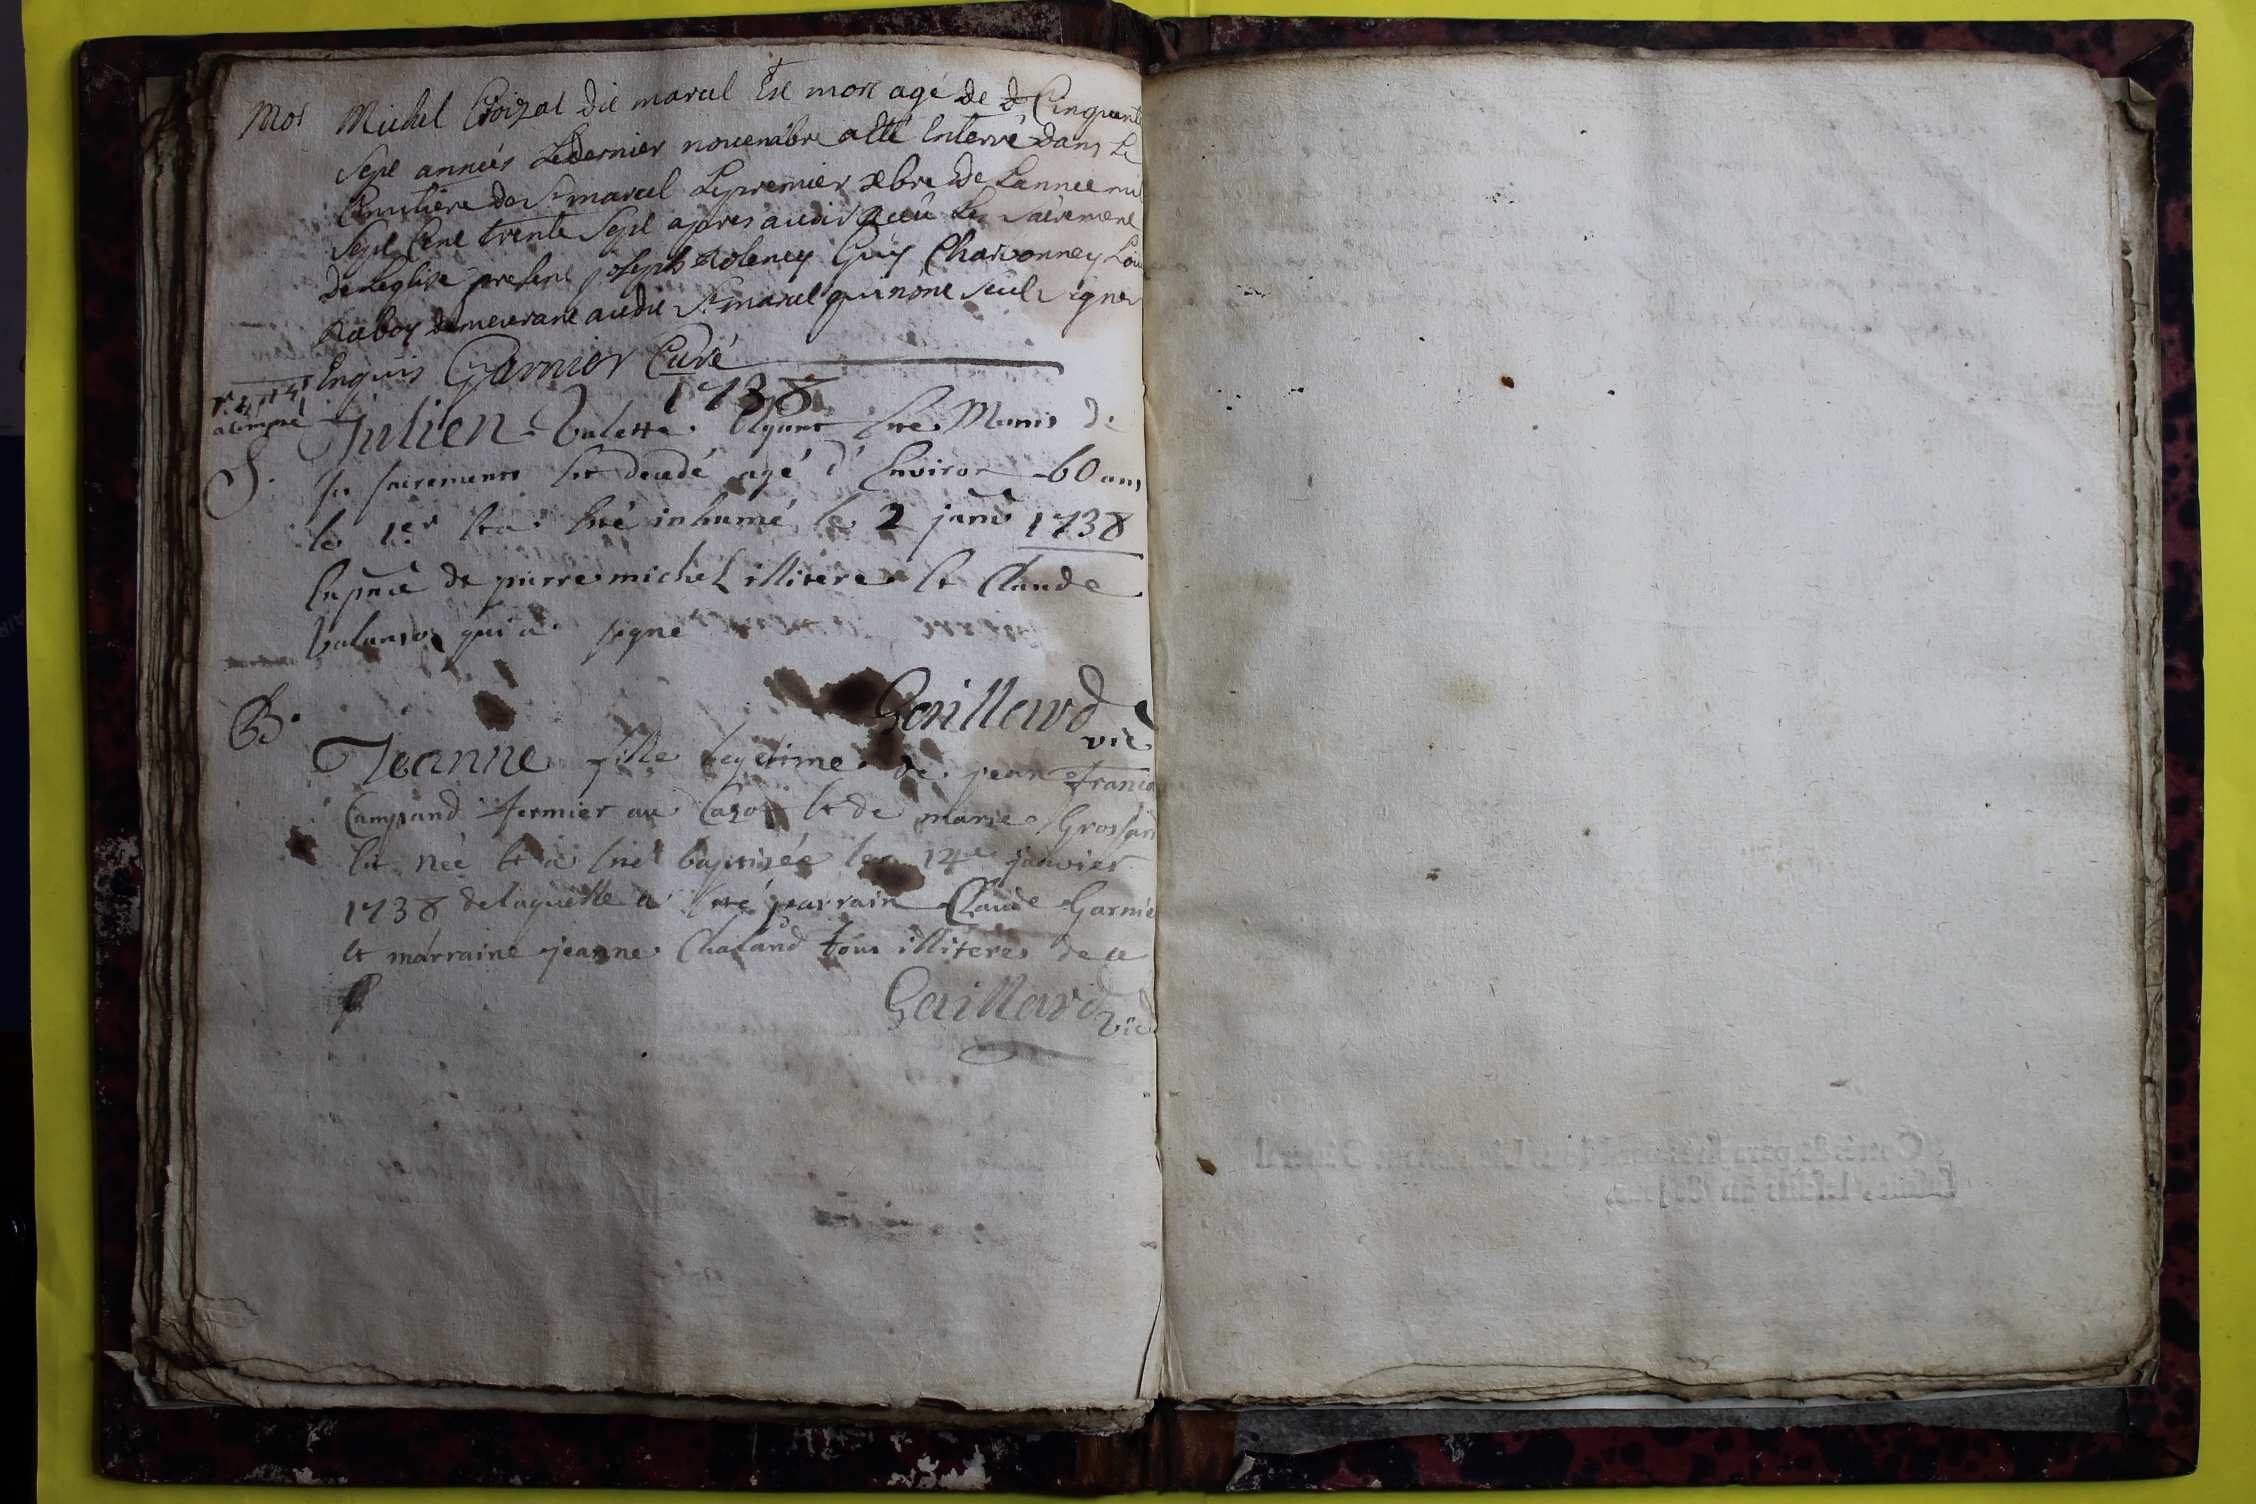 Mor Michel Croizat dit marcel Est mort agé de Cinquante
Sept années Ledernier novembre aété Enterré Dans Le
Cimitiere de St marcel Lepremier xbre de Lannee mil
Sept Cent trente Sept apres auoir receu Les sacrement
de Leglise present joseph Guy Charvonney Loüis
duboy demeurant audit St marcel qui nont sceu signer
Enquis Garnier Curé
1738
S. Julien Valette Ayant été Munis de
ses sacrements est decedé agé d'Environ 60 ans
le 1er et a été inhumé le 2 janv 1738
En pnce de pierre michel illitere et Claude
qui a signé
Gaillard vic
B. Jeanne fille legetime de jean francois
Campand fermier au et de marie
Est née et a été baptisée le 14e janvier
1738 delaquelle a été parrain Claude Garnie
et marraine jeanne Chaland tous illiteres de ce
Gaillard vic